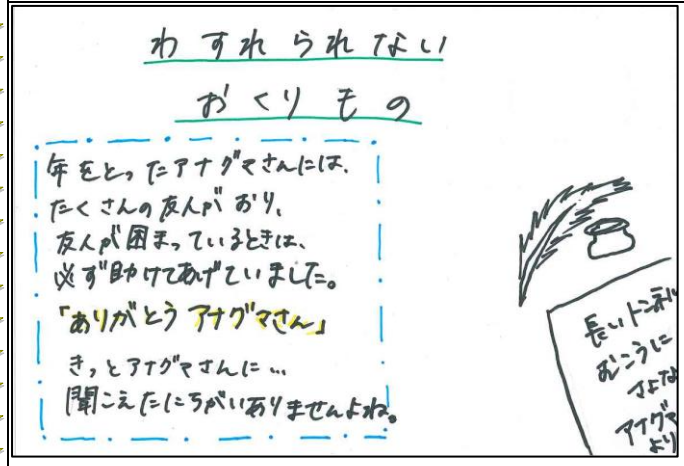 わすれられない
おくりもの
年をとったアナグマさんには、
たくさんの友人がおり、
友人が困まっているときは、
必ず助けてあげていました。
「ありがとう アナグマさん」
きっとアナグマさんに…
聞こえたにちがいありませんよね。
長いトンネル
むこうに
さよな
アナグマ
より